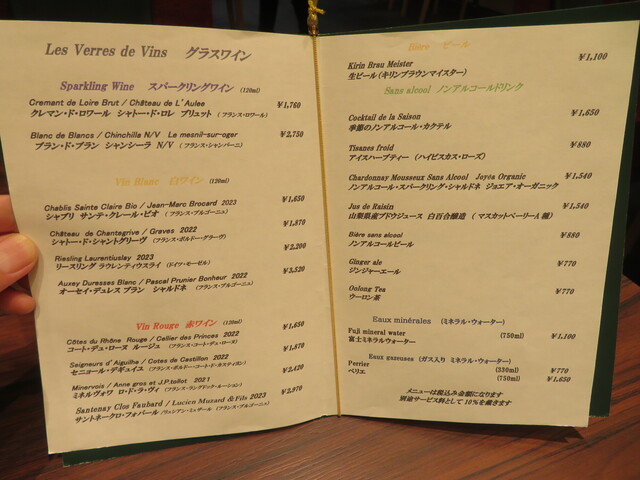 Les Verres de Vins グラスワイン
Sparkling Wine スパークリングワイン (120ml)
Cremant de Loire Brut / Château de L'Aulee ¥1,760
クレマン・ド・ロワール シャトー・ド・ロレ ブリュット (フランス・ロワール)
Blanc de Blancs / Chinchilla N/V Le mesnil-sur-oger ¥2,750
ブラン・ド・ブラン シャンシーラ N/V (フランス・シャンパーニ)
Vin Blanc 白ワイン (120ml)
Chablis Sainte Claire Bio / Jean-Marc Brocard 2023 ¥1,650
シャブリ サンテ・クレール・ビオ (フランス・ブルゴーニュ)
Château de Chantegrive / Graves 2022 ¥1,870
シャトー・ド・シャントグリーヴ (フランス・ボルドー・グラーヴ)
Riesling Laurentiuslay 2023 ¥2,200
リースリング ラウレンティウスライ (ドイツ・モーゼル)
Auxey Duresses Blanc / Pascal Prunier Bonheur 2022 ¥3,520
オーセイ・デュレス ブラン シャルドネ (フランス・ブルゴーニュ)
Vin Rouge 赤ワイン (120ml)
Côtes du Rhône Rouge / Cellier des Princes 2022 ¥1,650
コート・デュ・ローヌ ルージュ (フランス・コート・デュ・ローヌ)
Seigneurs d'Aiguilhe / Cotes de Castillon 2022 ¥1,870
セニョール・デギュイユ (フランス・ボルドー・コート・ド・カスティヨン)
Minervois / Anne gros et J.P.tollot 2021 ¥2,420
ミネルヴォワ ロ・ド・ラ・ヴィ (フランス・ラングドック・ルーション)
Santenay Clos Faubard / Lucien Muzard & Fils 2023 ¥2,970
サントネークロ・フォバール /リュシアン・ミュザール (フランス・ブルゴーニュ)
Bière ビール
Kirin Brau Meister ¥1,100
生ビール(キリンブラウンマイスター)
Sans alcool ノンアルコールドリンク
Cocktail de la Saison ¥1,650
季節のノンアルコール・カクテル
Tisanes froid ¥880
アイスハーブティー (ハイビスカス・ローズ)
Chardonnay Mousseux Sans Alcool Joyéa Organic ¥1,540
ノンアルコール・スパークリング・シャルドネ ジョエア・オーガニック
Jus de Raisin ¥1,540
山梨県産ブドウジュース 白百合醸造 ( マスカットベーリーA 種)
Bière sans alcool ¥880
ノンアルコールビール
Ginger ale ¥770
ジンジャーエール
Oolong Tea ¥770
ウーロン茶
Eaux minérales (ミネラル・ウォーター)
Fuji mineral water (750ml) ¥1,100
富士ミネラルウォーター
Eaux gazeuses (ガス入り ミネラル・ウォーター)
Perrier (330ml) ¥770
ペリエ (750ml) ¥1,650
メニューは税込み金額になります
別途サービス料として 10%を戴きます